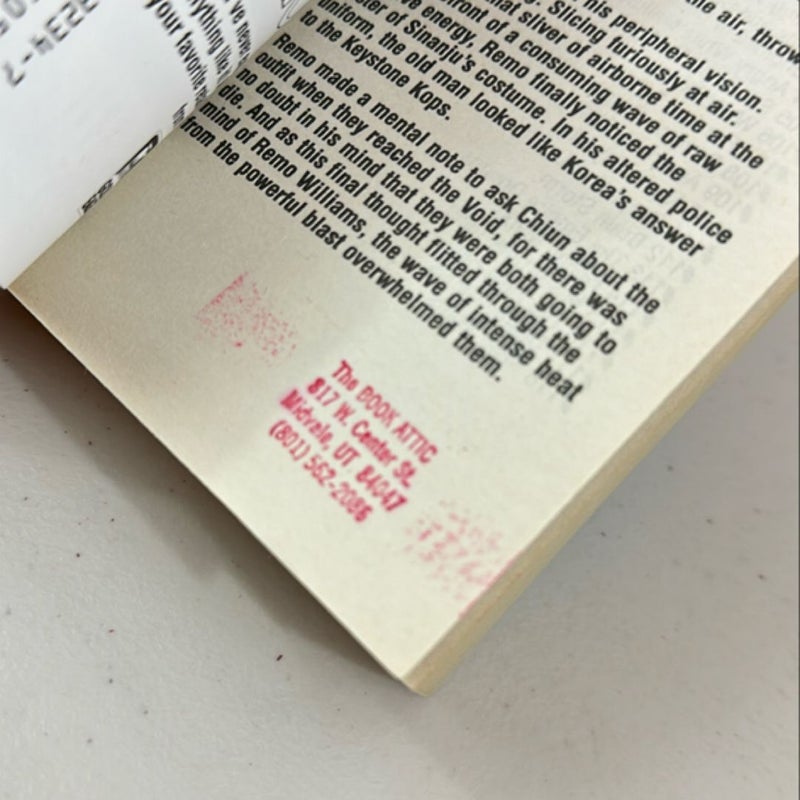 the air, throw
his peripheral vision.
Slicing furiously at air.
silver of airborne time at the
front of a consuming wave of raw
energy, Remo finally noticed the
of Sinanju's costume. In his altered police
uniform, the old man looked like Korea's answer
to the Keystone Kops.
Remo made a mental note to ask Chiun about the
outfit when they reached the Void, for there was
no doubt in his mind that they were both going to
die. And as this final thought flitted through the
mind of Remo Williams, the wave of intense heat
from the powerful blast overwhelmed them.
The BOOK ATTIC
817 W. Center St.
Midvale, UT 84047
(801) 562-2086
've never
anything like
your favorite